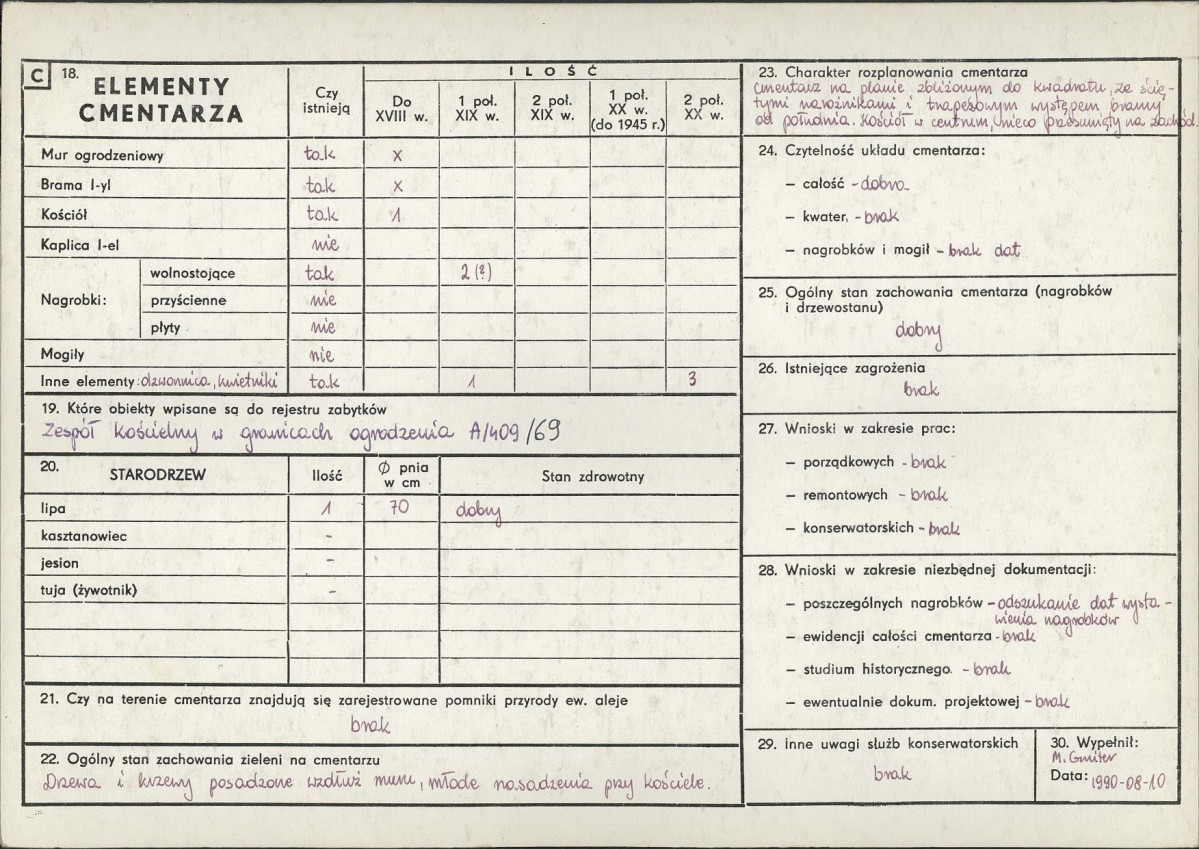 C 18. ELEMENTY CMENTARZA
Czy istnieją
ILOŚĆ
Do XVIII w.
1 poł. XIX w.
2 poł. XIX w.
1 poł. XX w. (do 1945 r.)
2 poł. XX w.
Mur ogrodzeniowy tak x
Brama l-yl tak x
Kościół tak 1
Kaplica l-el nie
Nagrobki: wolnostojące tak 2 (?)
przyścienne nie
płyty nie
Mogiły nie
Inne elementy: dzwonnica, kwietniki tak 1 3
19. Które obiekty wpisane są do rejestru zabytków
Zespół kościelny w granicach ogrodzenia A/409/69
20. STARODRZEW Ilość Ø pnia w cm Stan zdrowotny
lipa 1 70 dobry
kasztanowiec -
jesion -
tuja (żywotnik) -
21. Czy na terenie cmentarza znajdują się zarejestrowane pomniki przyrody ew. aleje
brak
22. Ogólny stan zachowania zieleni na cmentarzu
Drzewa i krzewy posadzone wzdłuż muru, młode nasadzenia przy kościele.
23. Charakter rozplanowania cmentarza
cmentarz na planie zbliżonym do kwadratu, ze ścię-
tymi narożnikami i trapezowym występem bramy
od południa. Kościół w centrum, nieco przesunięty na zachód.
24. Czytelność układu cmentarza:
– całość - dobra
– kwater, - brak
– nagrobków i mogił - brak dat
25. Ogólny stan zachowania cmentarza (nagrobków
i drzewostanu)
dobry
26. Istniejące zagrożenia
brak
27. Wnioski w zakresie prac:
– porządkowych - brak
– remontowych - brak
– konserwatorskich - brak
28. Wnioski w zakresie niezbędnej dokumentacji:
– poszczególnych nagrobków - odszukanie dat wysta-
wienia nagrobków
– ewidencji całości cmentarza - brak
– studium historycznego. - brak
– ewentualnie dokum. projektowej - brak
29. Inne uwagi służb konserwatorskich
brak
30. Wypełnił:
M. Gmiter
Data: 1990-08-10